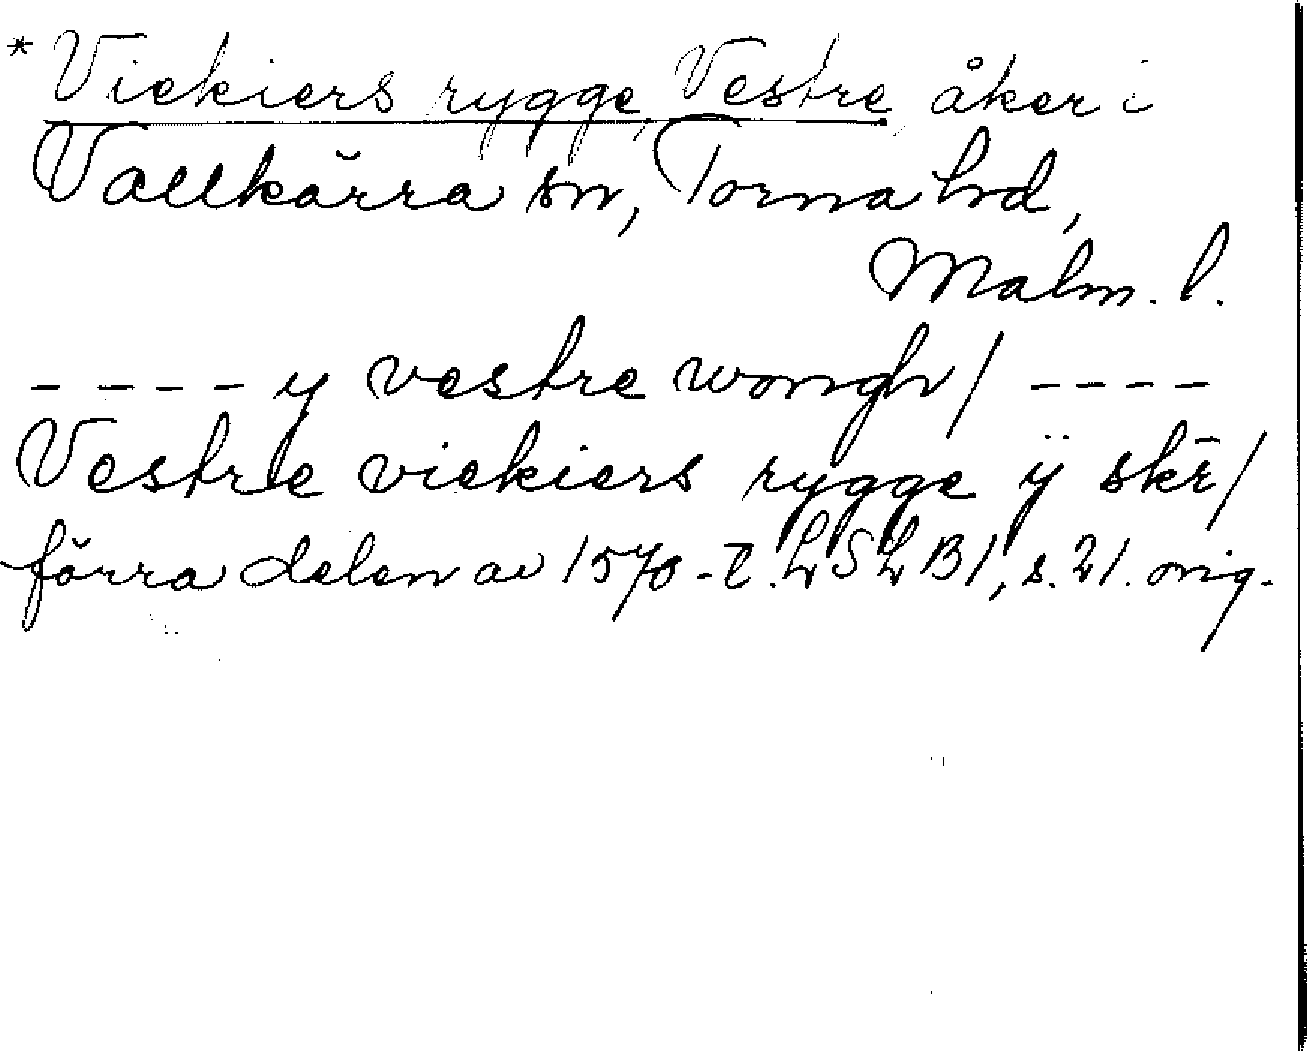 * Viekiers rygge, Vestre, åker i
Vallkärra sn, Torna hd,
Malm. l.
---- y vestre wongh/ ----
Vestre viekiers rygge ÿ skr̄/
förra delen av 1570-t. LSLB1, s. 21. orig.